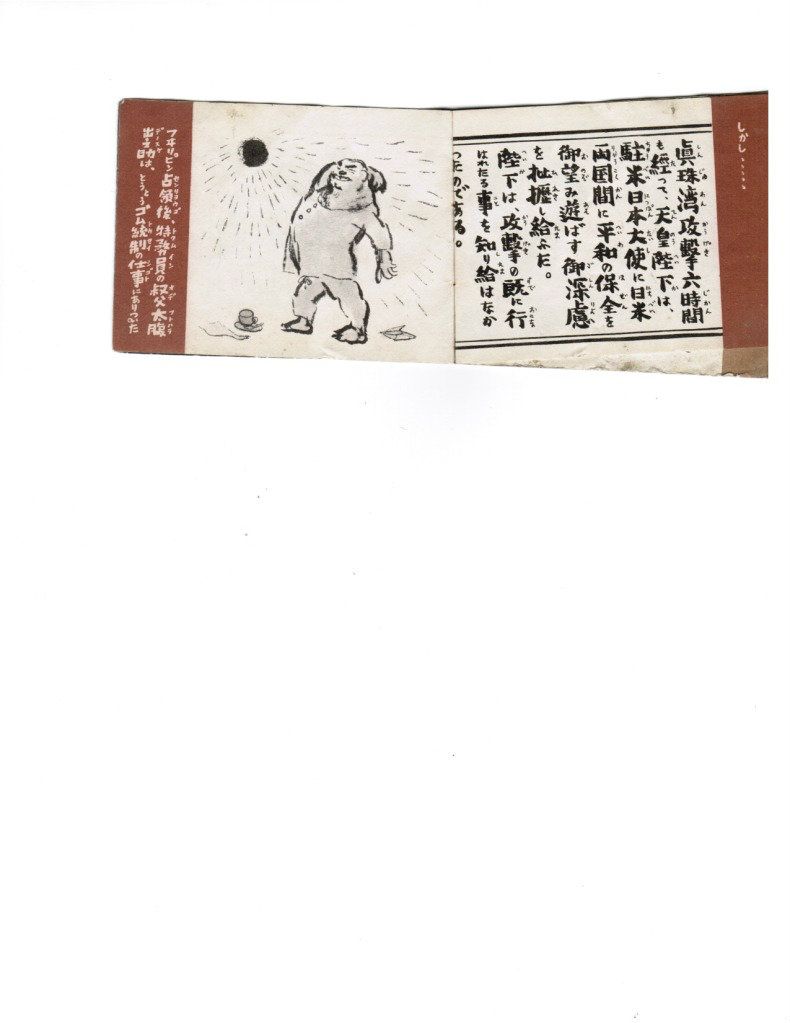 しかし……
眞珠湾攻撃六時間
も經って、天皇陛下は、
駐米日本大使に日米
両国間に平和の保全を
御望み遊ばす御深慮
を批握し給ふた。
陛下は、攻撃の既に行
はれたる事を知り給はなか
ったのである。
フヰリピン占領後特務員の叔父太腹
助は、とうとうゴム統制の仕事にありついた